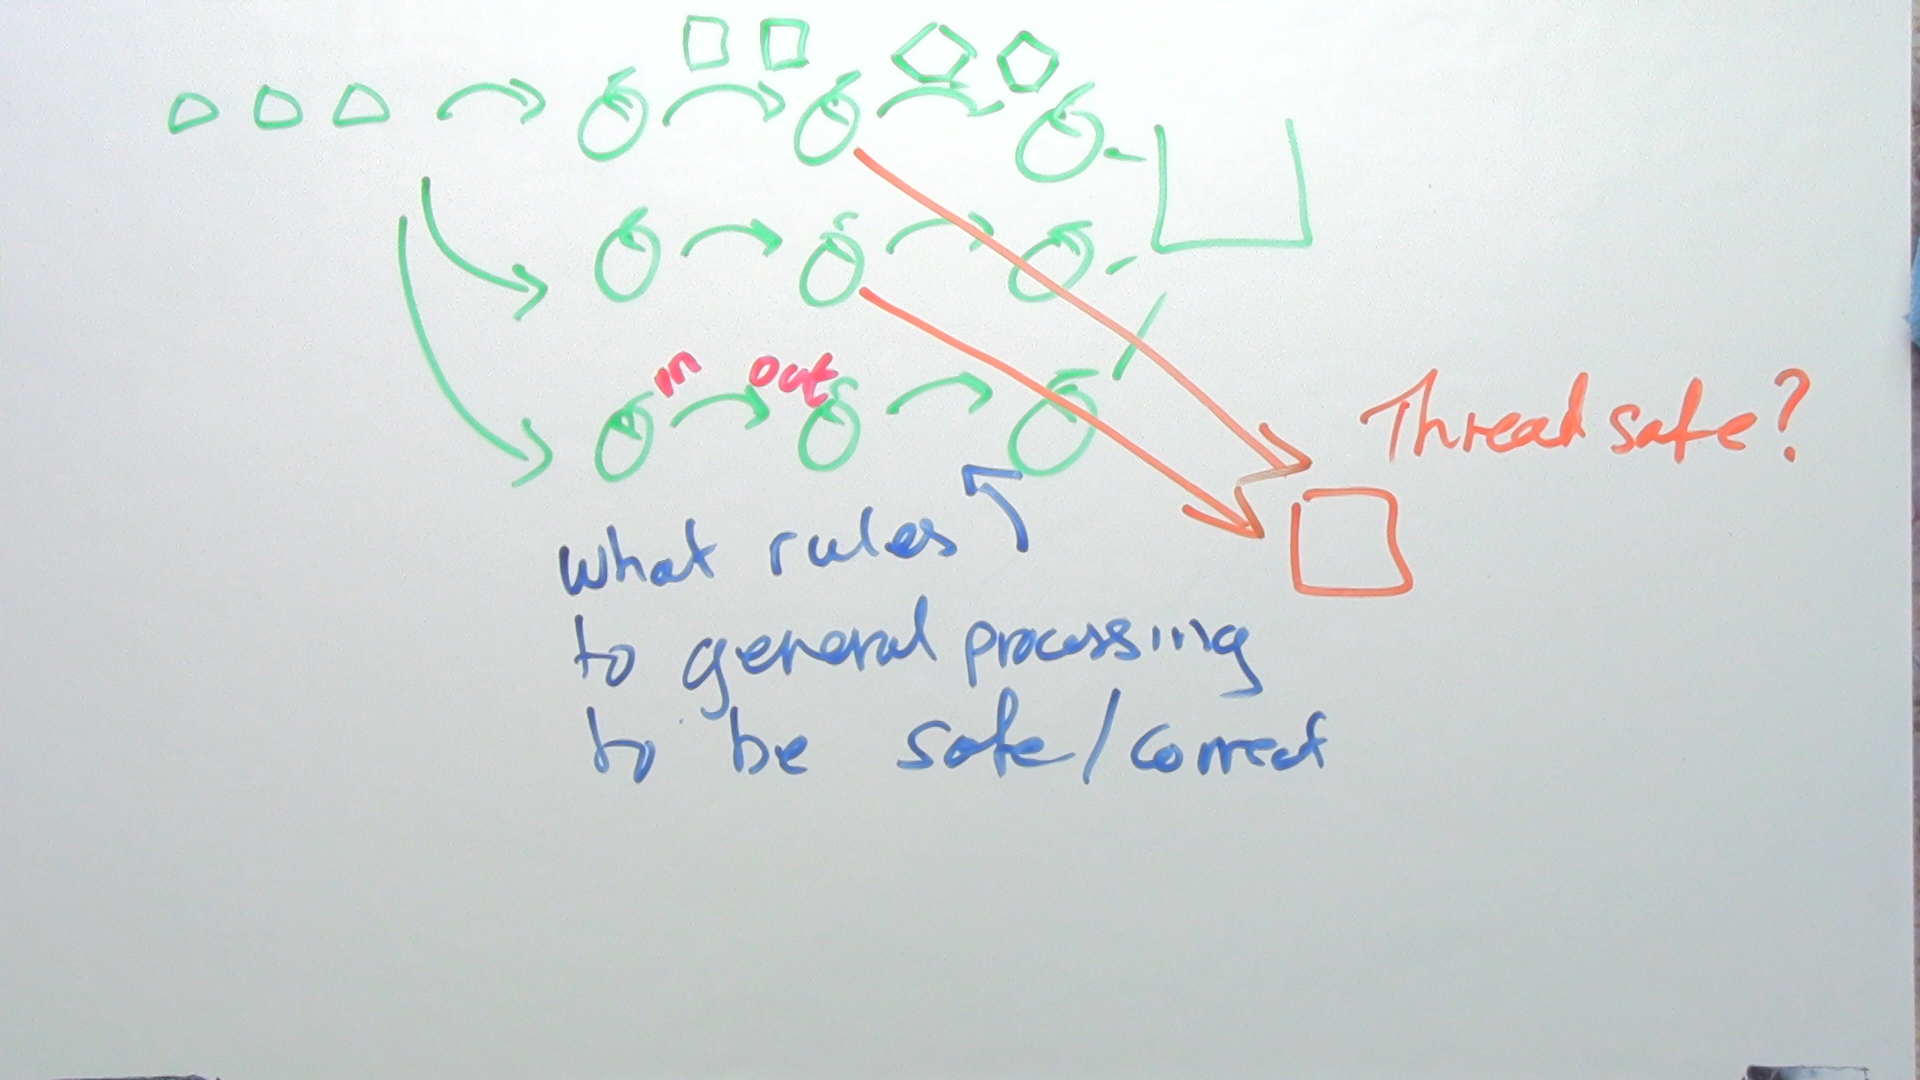 in out
Thread safe?
what rules
to general processing
to be safe/correct